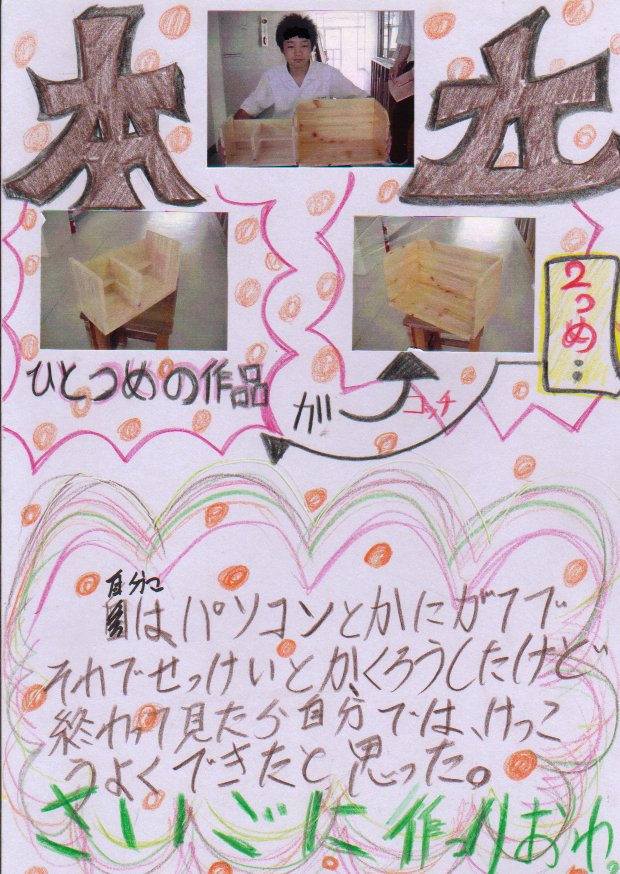 本立
2つめ…
ひとつめの作品
が
コッチ
自分
は、パソコンとかにがてで
それでせっけいとか、くろうしたけど
終わって見たら自分では、けっこ
うよくできたと思った。
さいごに作りおわ